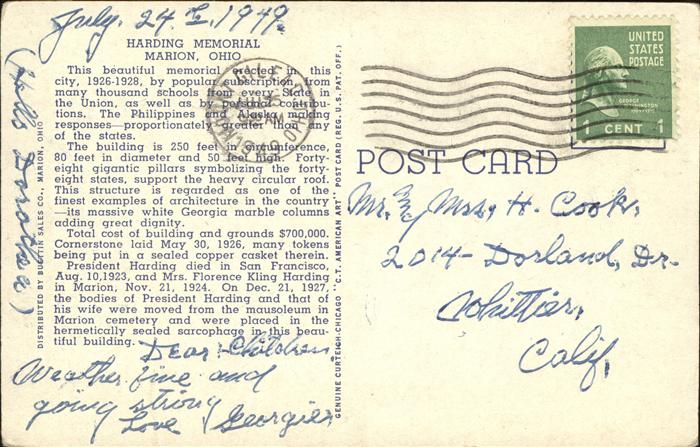 July. 24th, 1949.
HARDING MEMORIAL
MARION, OHIO
This beautiful memorial erected in this
city, 1926-1928, by popular subscription, from
many thousand schools from every State in
the Union, as well as by personal contribu-
tions. The Philippines and Alaska making
responses—proportionately greater than any
of the states.
The building is 250 feet in circumference,
80 feet in diameter and 50 feet high. Forty-
eight gigantic pillars symbolizing the forty-
eight states, support the heavy circular roof.
This structure is regarded as one of the
finest examples of architecture in the country
—its massive white Georgia marble columns
adding great dignity.
Total cost of building and grounds $700,000.
Cornerstone laid May 30, 1926, many tokens
being put in a sealed copper casket therein.
President Harding died in San Francisco,
Aug. 10, 1923, and Mrs. Florence Kling Harding
in Marion, Nov. 21, 1924. On Dec. 21, 1927,
the bodies of President Harding and that of
his wife were moved from the mausoleum in
Marion cemetery and were placed in the
hermetically sealed sarcophage in this beau-
tiful building.
Dear Children
Weather fine and
going strong
Love Georgie
(Hello Dorothae)
DISTRIBUTED BY BUNTIN SALES CO., MARION, OHIO
GENUINE CURTEICH-CHICAGO "C.T. AMERICAN ART" POST CARD (REG. U.S. PAT. OFF.)
UNITED
STATES
POSTAGE
GEORGE
WASHINGTON
1 CENT 1
POST CARD
Mr. & Mrs. H. Cook,
2014- Dorland, Dr.
Whittier,
Calif,